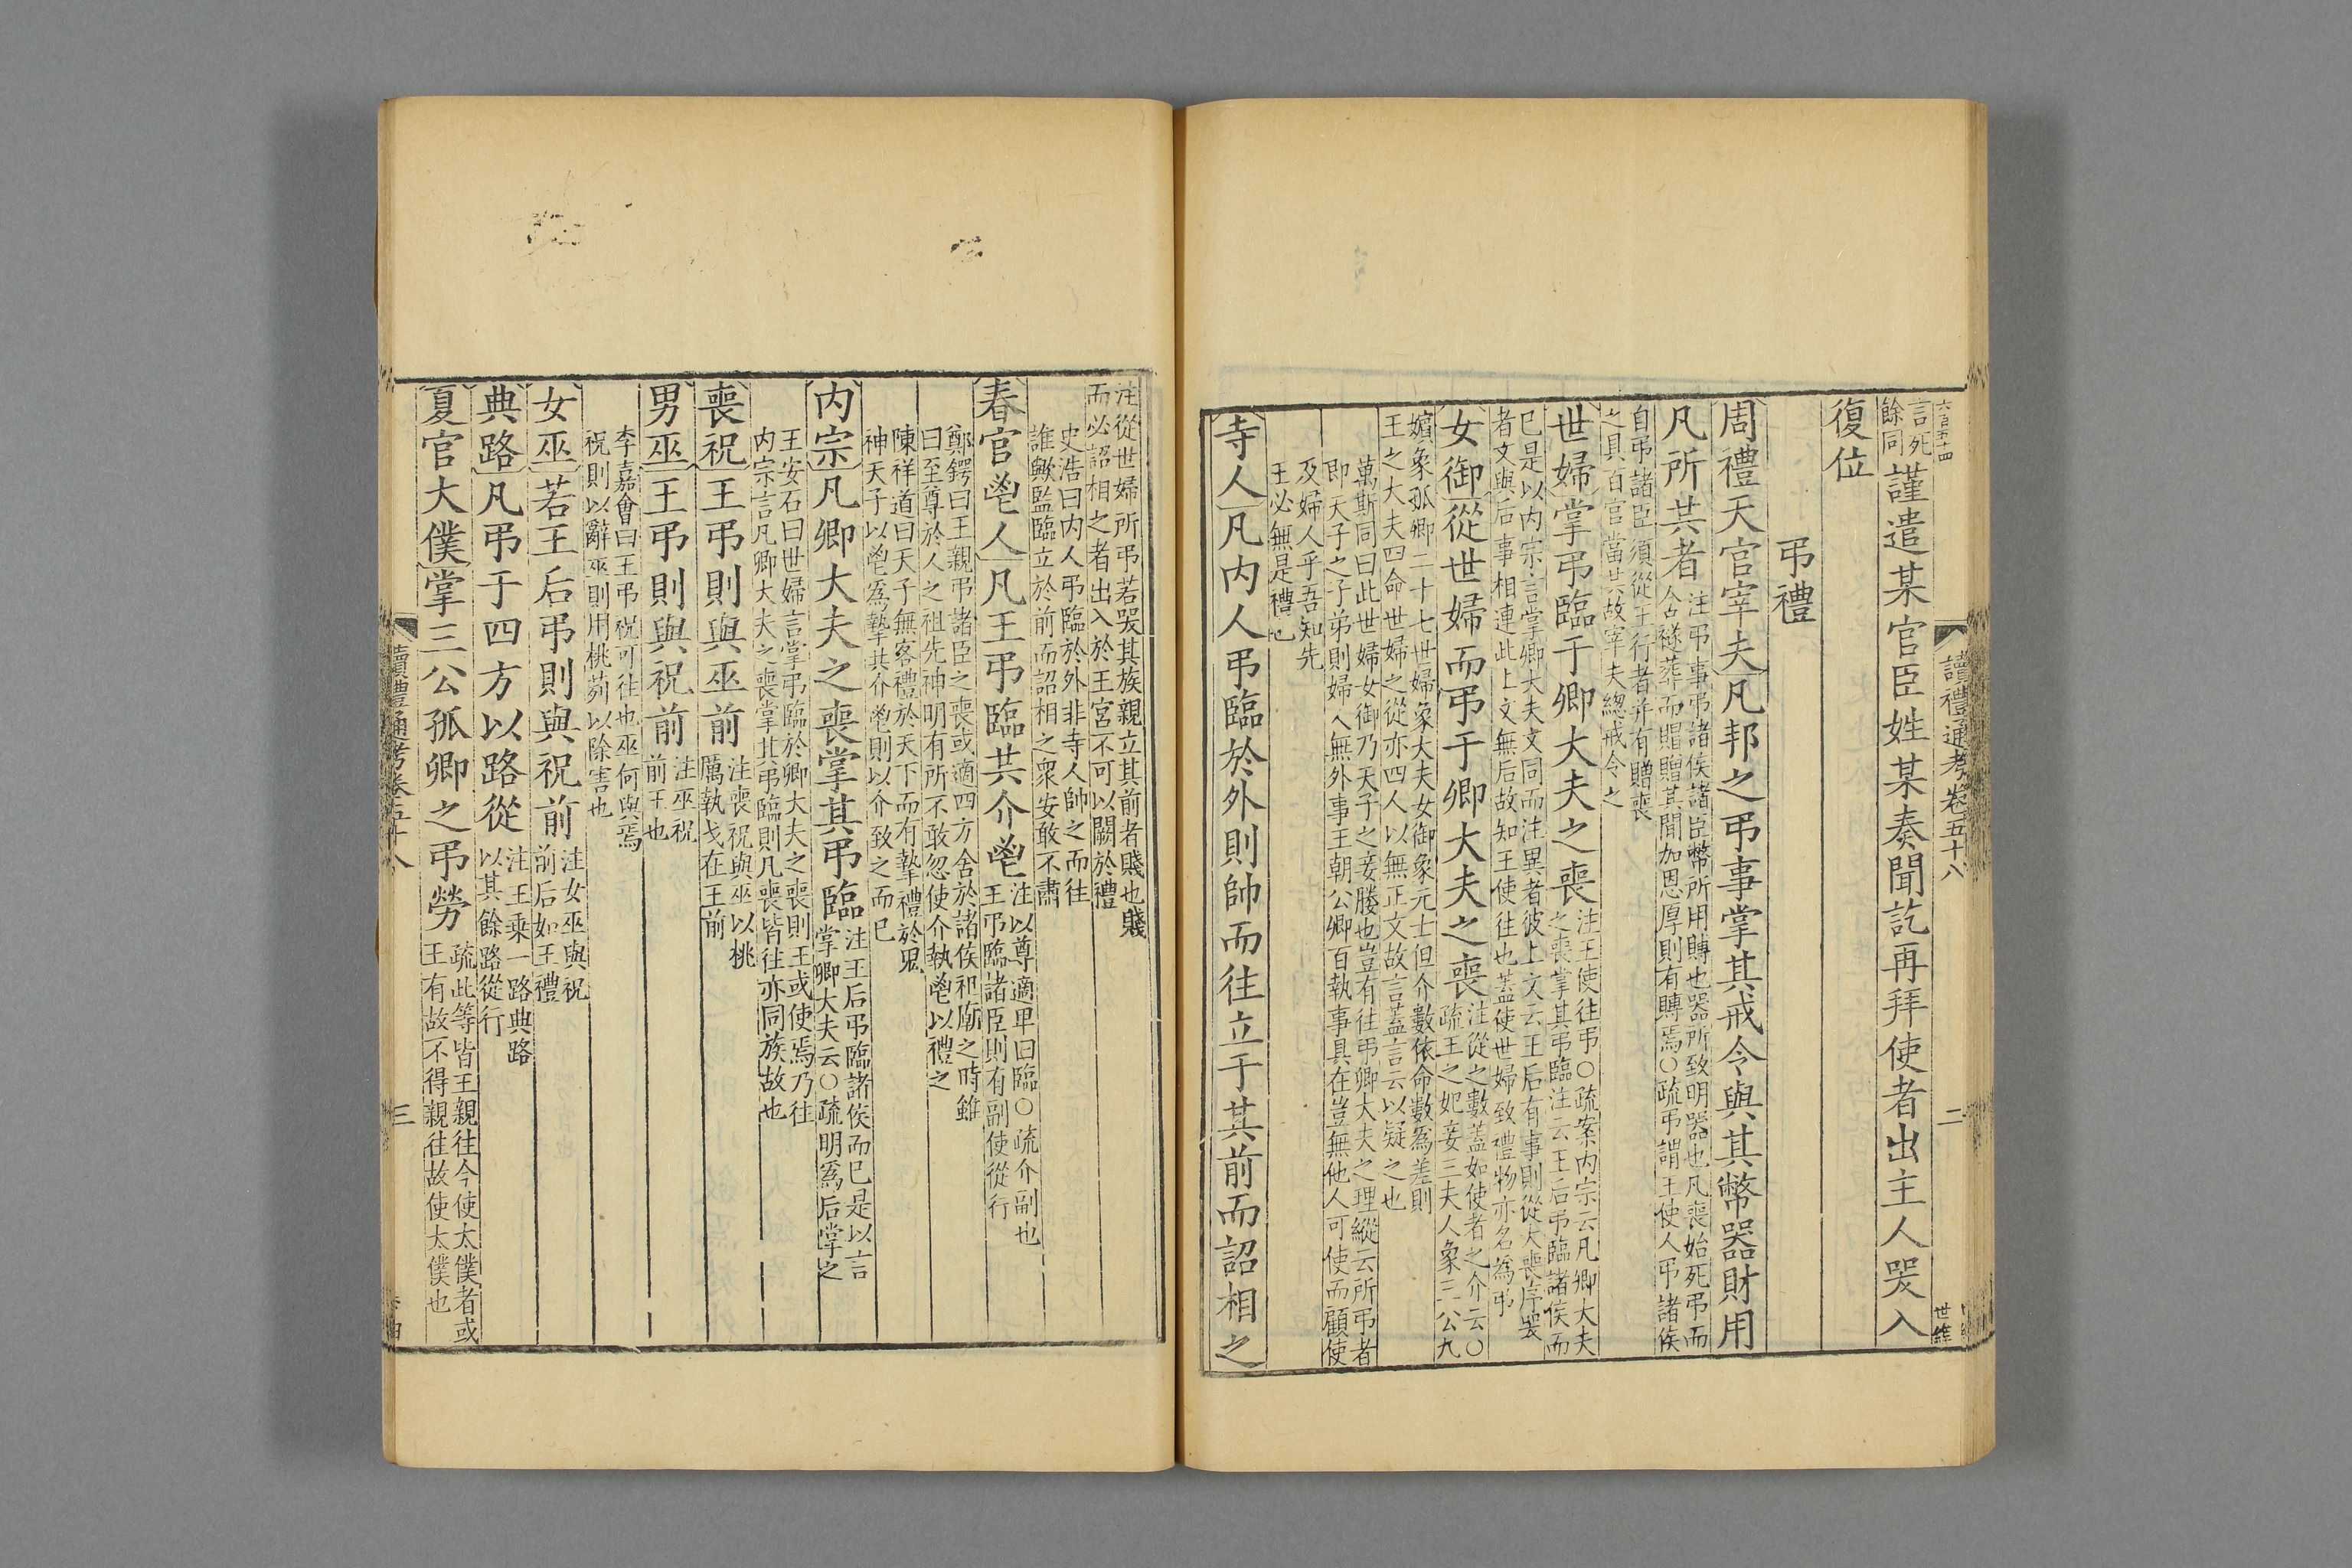 六百五十四
讀禮通考卷五十八
二
言死
餘同
謹遣某官臣姓某奏聞訖再拜使者出主人哭入
復位
弔禮
周禮天官宰夫凡邦之弔事掌其戒令與其幣器財用
凡所共者
注弔事弔諸侯諸臣幣所用賻也器所致明器也凡喪始死弔而
含襚葬而賵贈其間加恩厚則有賻焉○疏弔謂王使人弔諸侯
自弔諸臣須從王行者并有贈喪
之具百官當共故宰夫總戒令之
世婦掌弔臨于卿大夫之喪
注王使往弔○疏案内宗云凡卿大夫
之喪掌其弔臨注云王后弔臨諸侯而
已是以内宗言掌卿大夫文同而注異者彼上文云王后有事則從大喪序哭
者文與后事相連此上文無后故知王使往也蓋使世婦致禮物亦名為弔
女御從世婦而弔于卿大夫之喪
注從之數蓋如使者之介云○
疏王之妃妾三夫人象三公九
嬪象孤卿二十七世婦象大夫女御象元士但介數依命數為差則
王之大夫四命世婦之從亦四人以無正文故言蓋言云以疑之也
萬斯同曰此世婦女御乃天子之妾媵也豈有往弔卿大夫之理縱云所弔者
即天子之子弟則婦人無外事王朝公卿百執事具在豈無他人可使而顧使
及婦人乎吾知先
王必無是禮也
寺人凡内人弔臨於外則帥而往立于其前而詔相之
注從世婦所弔若哭其族親立其前者賤也賤
而必詔相之者出入於王宮不可以闕於禮
史浩曰内人弔臨於外非寺人帥之而往
誰歟監臨立於前而詔相之衆安敢不肅
春官鬯人凡王弔臨共介鬯
注以尊適卑曰臨○疏介副也
王弔臨諸臣則有副使從行
鄭鍔曰王親弔諸臣之喪或適四方舍於諸侯祖廟之時雖
曰至尊於人之祖先神明有所不敢忽使介執鬯以禮之
陳祥道曰天子無客禮於天下而有摯禮於鬼
神天子以鬯為摯共介鬯則以介致之而已
内宗凡卿大夫之喪掌其弔臨
注王后弔臨諸侯而已是以言
掌卿大夫云○疏明為后掌之
王安石曰世婦言掌弔臨於卿大夫之喪則王或使焉乃往
内宗言凡卿大夫之喪掌其弔臨則凡喪皆往亦同族故也
喪祝王弔則與巫前
注喪祝與巫以桃
厲執戈在王前
男巫王弔則與祝前
注巫祝
前王也
李嘉會曰王弔祝可往也巫何與焉
祝則以辭巫則用桃茢以除害也
女巫若王后弔則與祝前
注女巫與祝
前后如王禮
典路凡弔于四方以路從
注王乘一路典路
以其餘路從行
夏官大僕掌三公孤卿之弔勞
疏此等皆王親往今使太僕者或
王有故不得親往故使太僕也
讀禮通考卷五十八
三